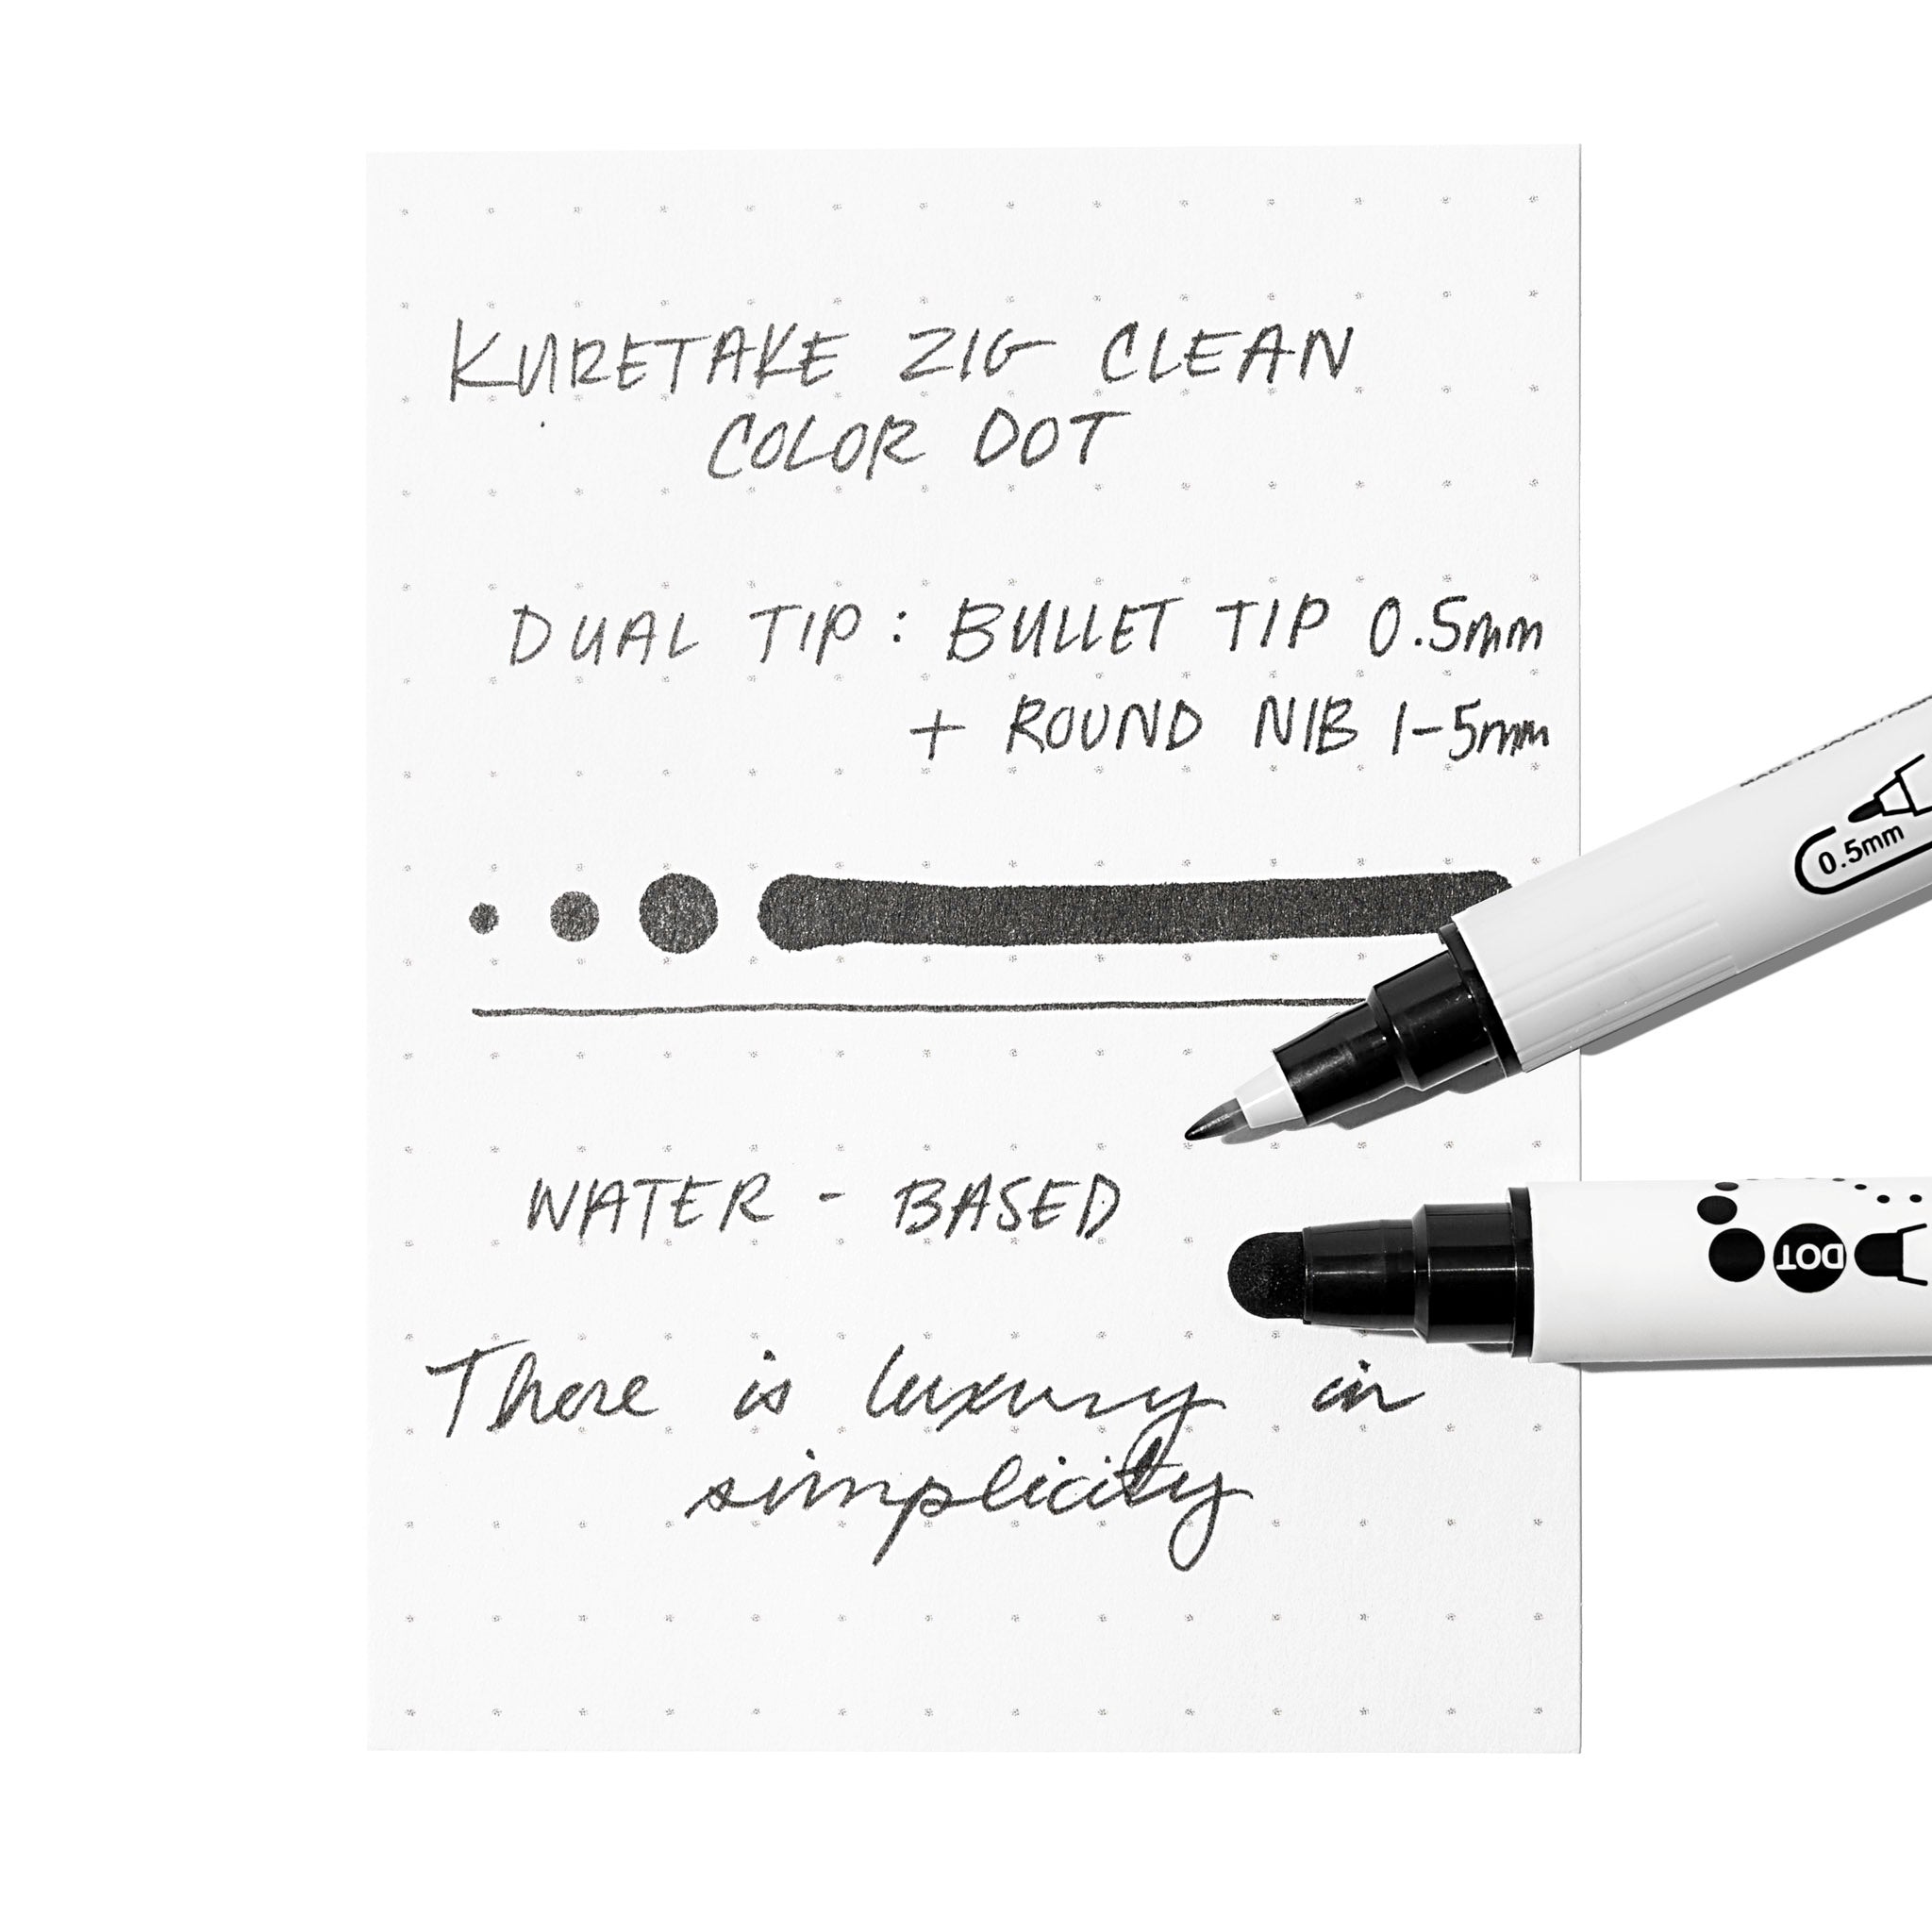 KURETAKE ZIG CLEAN
COLOR DOT
DUAL TIP : BULLET TIP 0.5mm
+ ROUND NIB 1-5mm
0.5mm
WATER - BASED
DOT
There is luxury in
simplicity